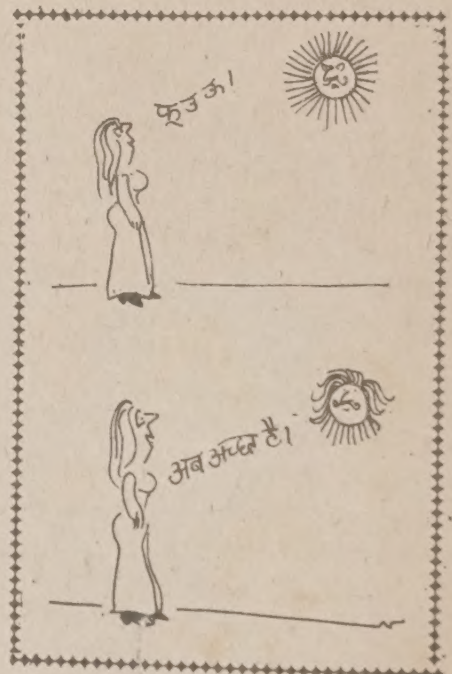 फूउऊ।
अब अच्छा है।